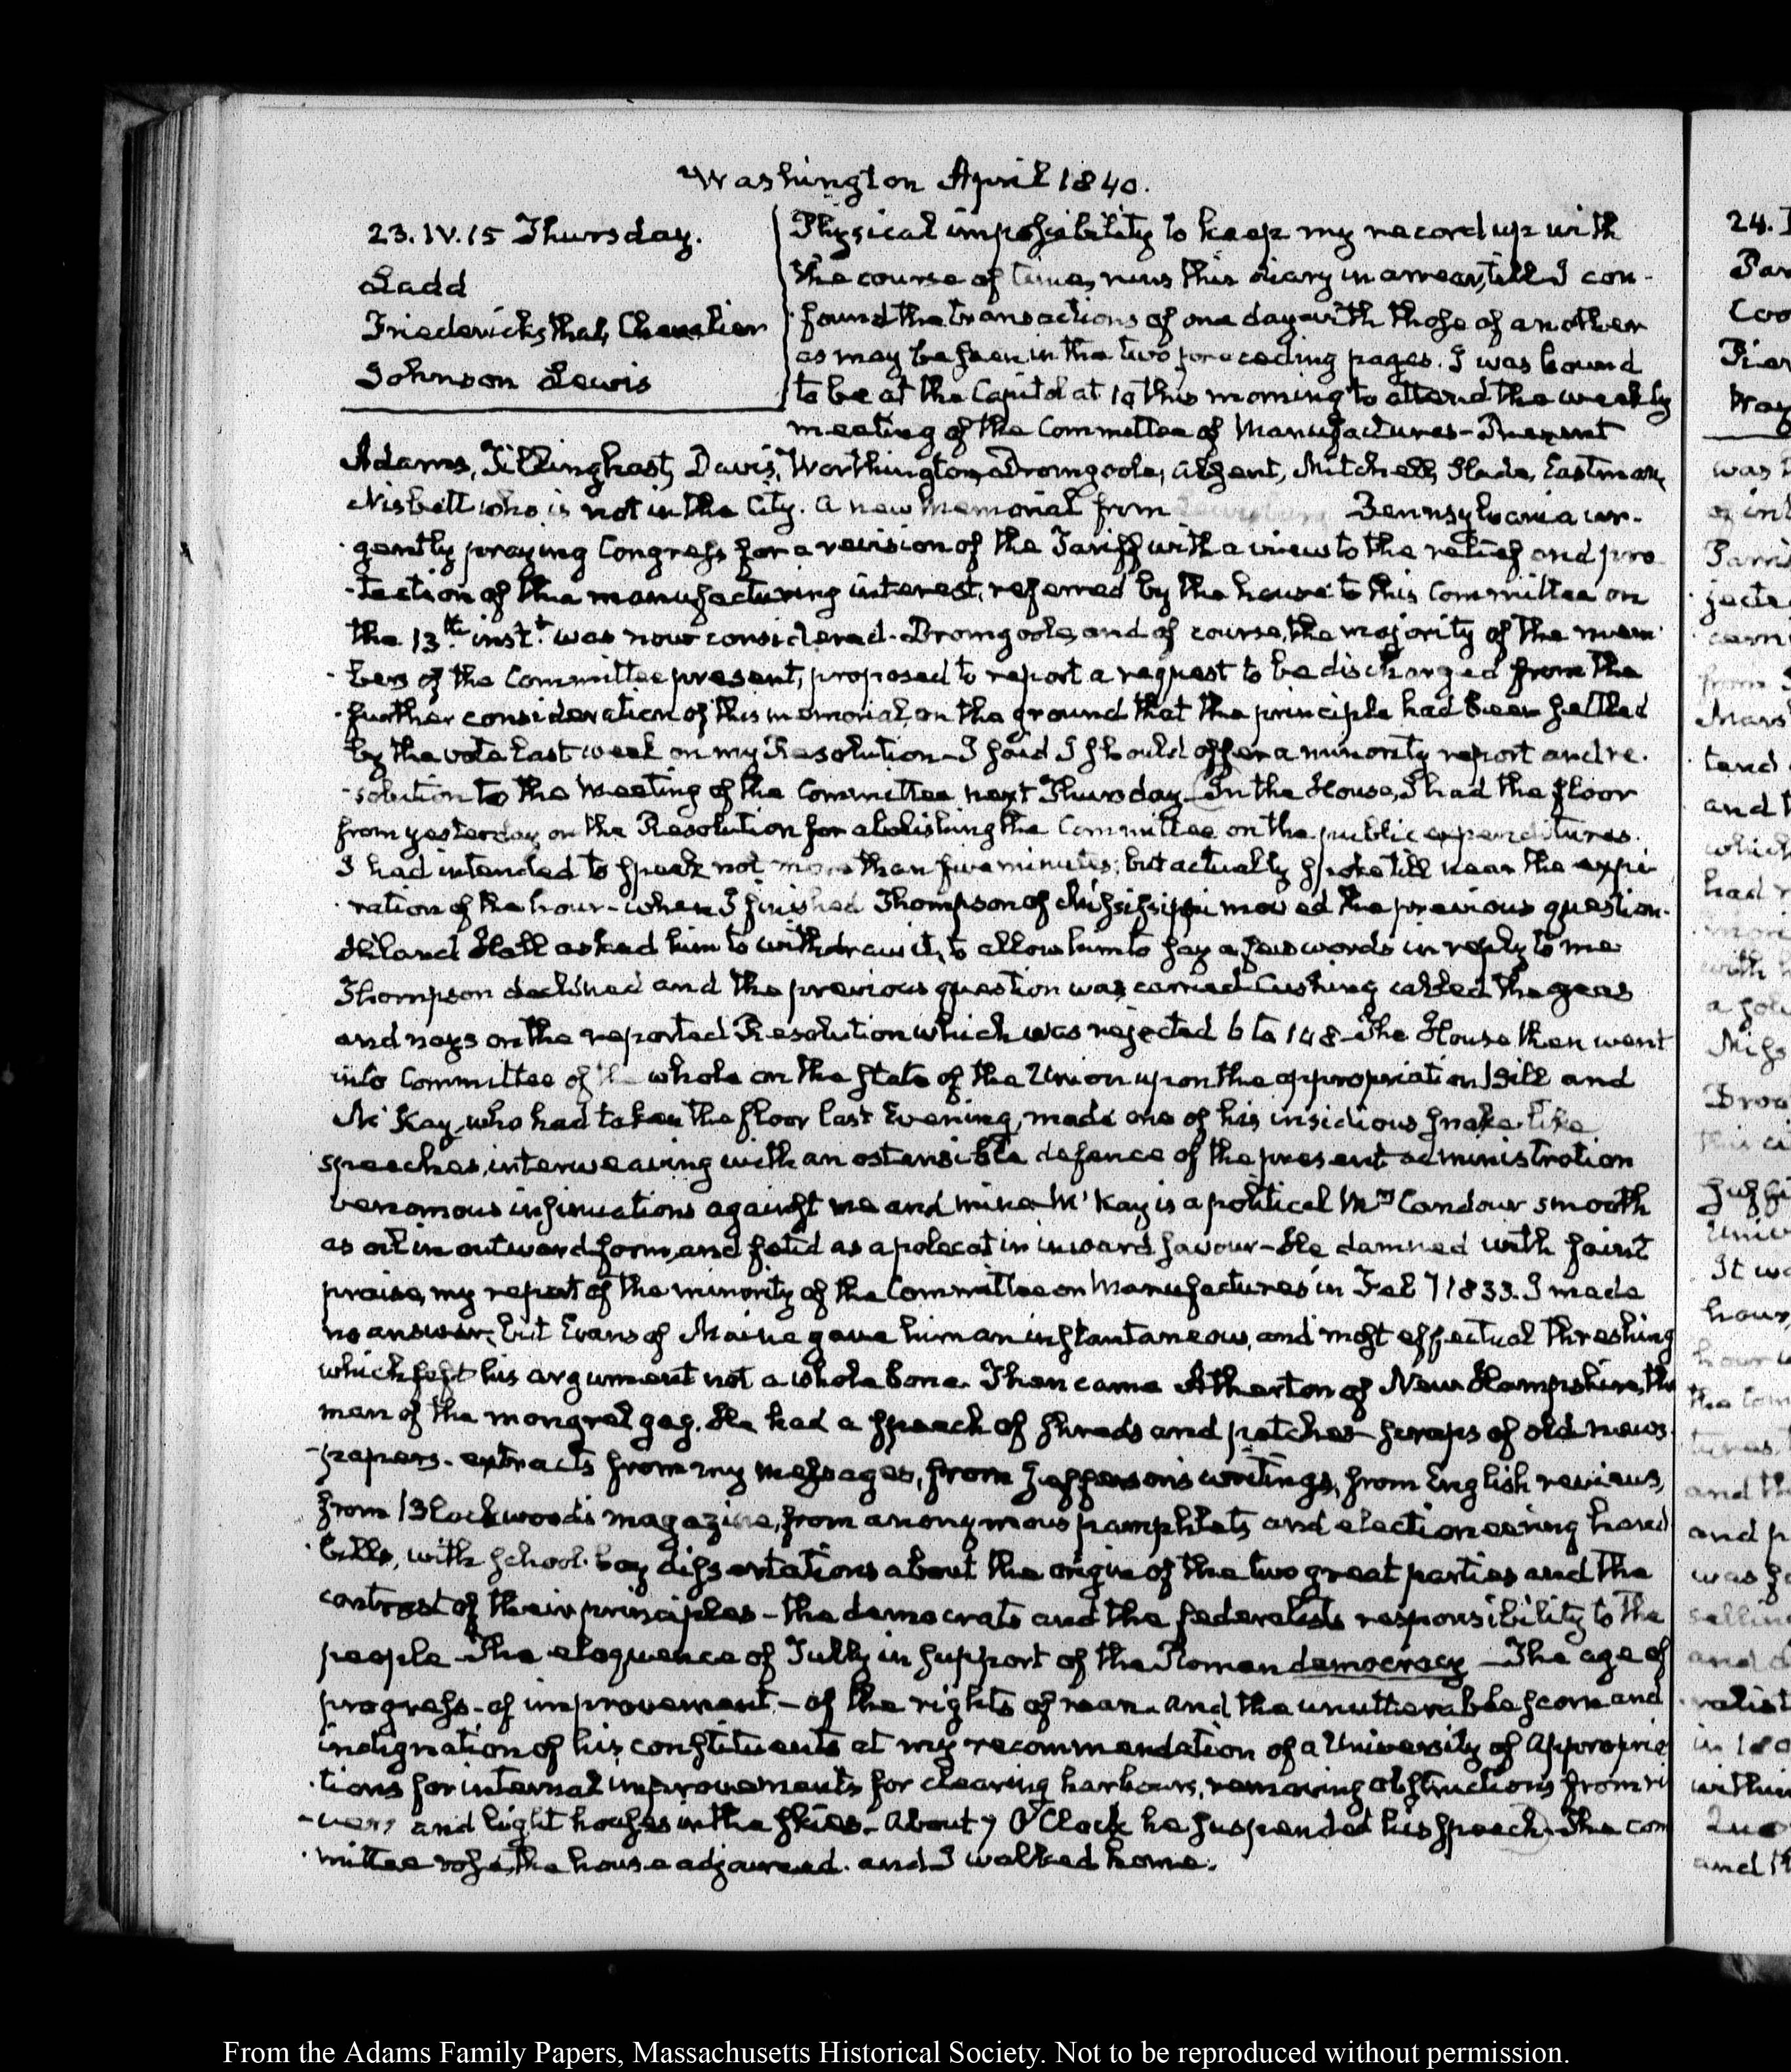 Washington April 1840.
23. IV. 15 Thursday.
Ladd
Friedericksthal, Chevalier
Johnson Lewis
Physical impossibility to keep my record up with
the course of time, runs this diary in arrear, till I con-
found the transactions of one day with those of another
as may be seen in the two preceding pages. I was bound
to be at the Capitol at 10 this morning to attend the weekly
meeting of the Committee of Manufactures - Present
Adams, Tillinghast, Davis, Worthington, Dromgoole, absent, Mitchell, Slade, Eastman,
Nisbett who is not in the City. A new Memorial from Pennsylvania ur-
gently praying Congress for a revision of the Tariff with a view to the relief and pro
-tection of the manufacturing interest, referred by the house to this Committee on
the 13th. instt. was now considered. Dromgoole, and of course, the majority of the mem
-bers of the Committee present, proposed to report a request to be discharged from the
further consideration of this memorial, on the ground that the principle had been settled
by the vote last week on my Resolution - I said I should offer a minority report and re-
-solution to the Meeting of the Committee next Thursday - In the House, I had the floor
from yesterday, on the Resolution for abolishing the Committee on the public expenditures.
I had intended to speak not more than five minutes; but actually spoke till near the expi
-ration of the hour - when I finished Thompson of Mississippi moved the previous question.
Hiland Hall asked him to withdraw it, to allow him to say a few words in reply to me
Thompson declined and the previous question was carried. Cushing called the yeas
and nays on the reported Resolution which was rejected 6 to 148 - The House then went
into Committee of the whole on the state of the Union upon the appropriation Bill and
Mc'Kay, who had taken the floor last Evening, made one of his insidious snake-like
speeches, interweaving with an ostensible defence of the present administration
venomous insinuations against me and mine - M'Kay is a political Mrs Candour smooth
as oil in outward form, and fetid as a polecat in inward savour - He damned with faint
praise, my report of the minority of the Committee on Manufactures in Feby 1833. I made
no answer, but Evans of Maine gave him an instantaneous, and most effectual threshing
which left his argument not a whole bone. Then came Atherton of New Hampshire, the
man of the mongrel gag. He had a speech of shreds and patches - scraps of old news-
-papers - extracts from my messages, from Jefferson's writings, from English reviews,
from Blackwood's magazine, from anonymous pamphlets and electioneering hand
-bills, with school-boy dissertations about the origin of the two great parties and the
contrast of their principles - the democrats and the federalists responsibility to the
people - The eloquence of Tully in support of the Roman democracy - The age of
progress - of improvement - of the rights of man. and the unutterable scorn and
indignation of his constituents at my recommendation of a University of appropria
-tions for internal improvements for clearing harbours, removing obstructions from ri
-vers and light houses in the skies - About 7 O'Clock he suspended his speech. The com
-mittee rose, the house adjourned. and I walked home.
24.
From the Adams Family Papers, Massachusetts Historical Society. Not to be reproduced without permission.